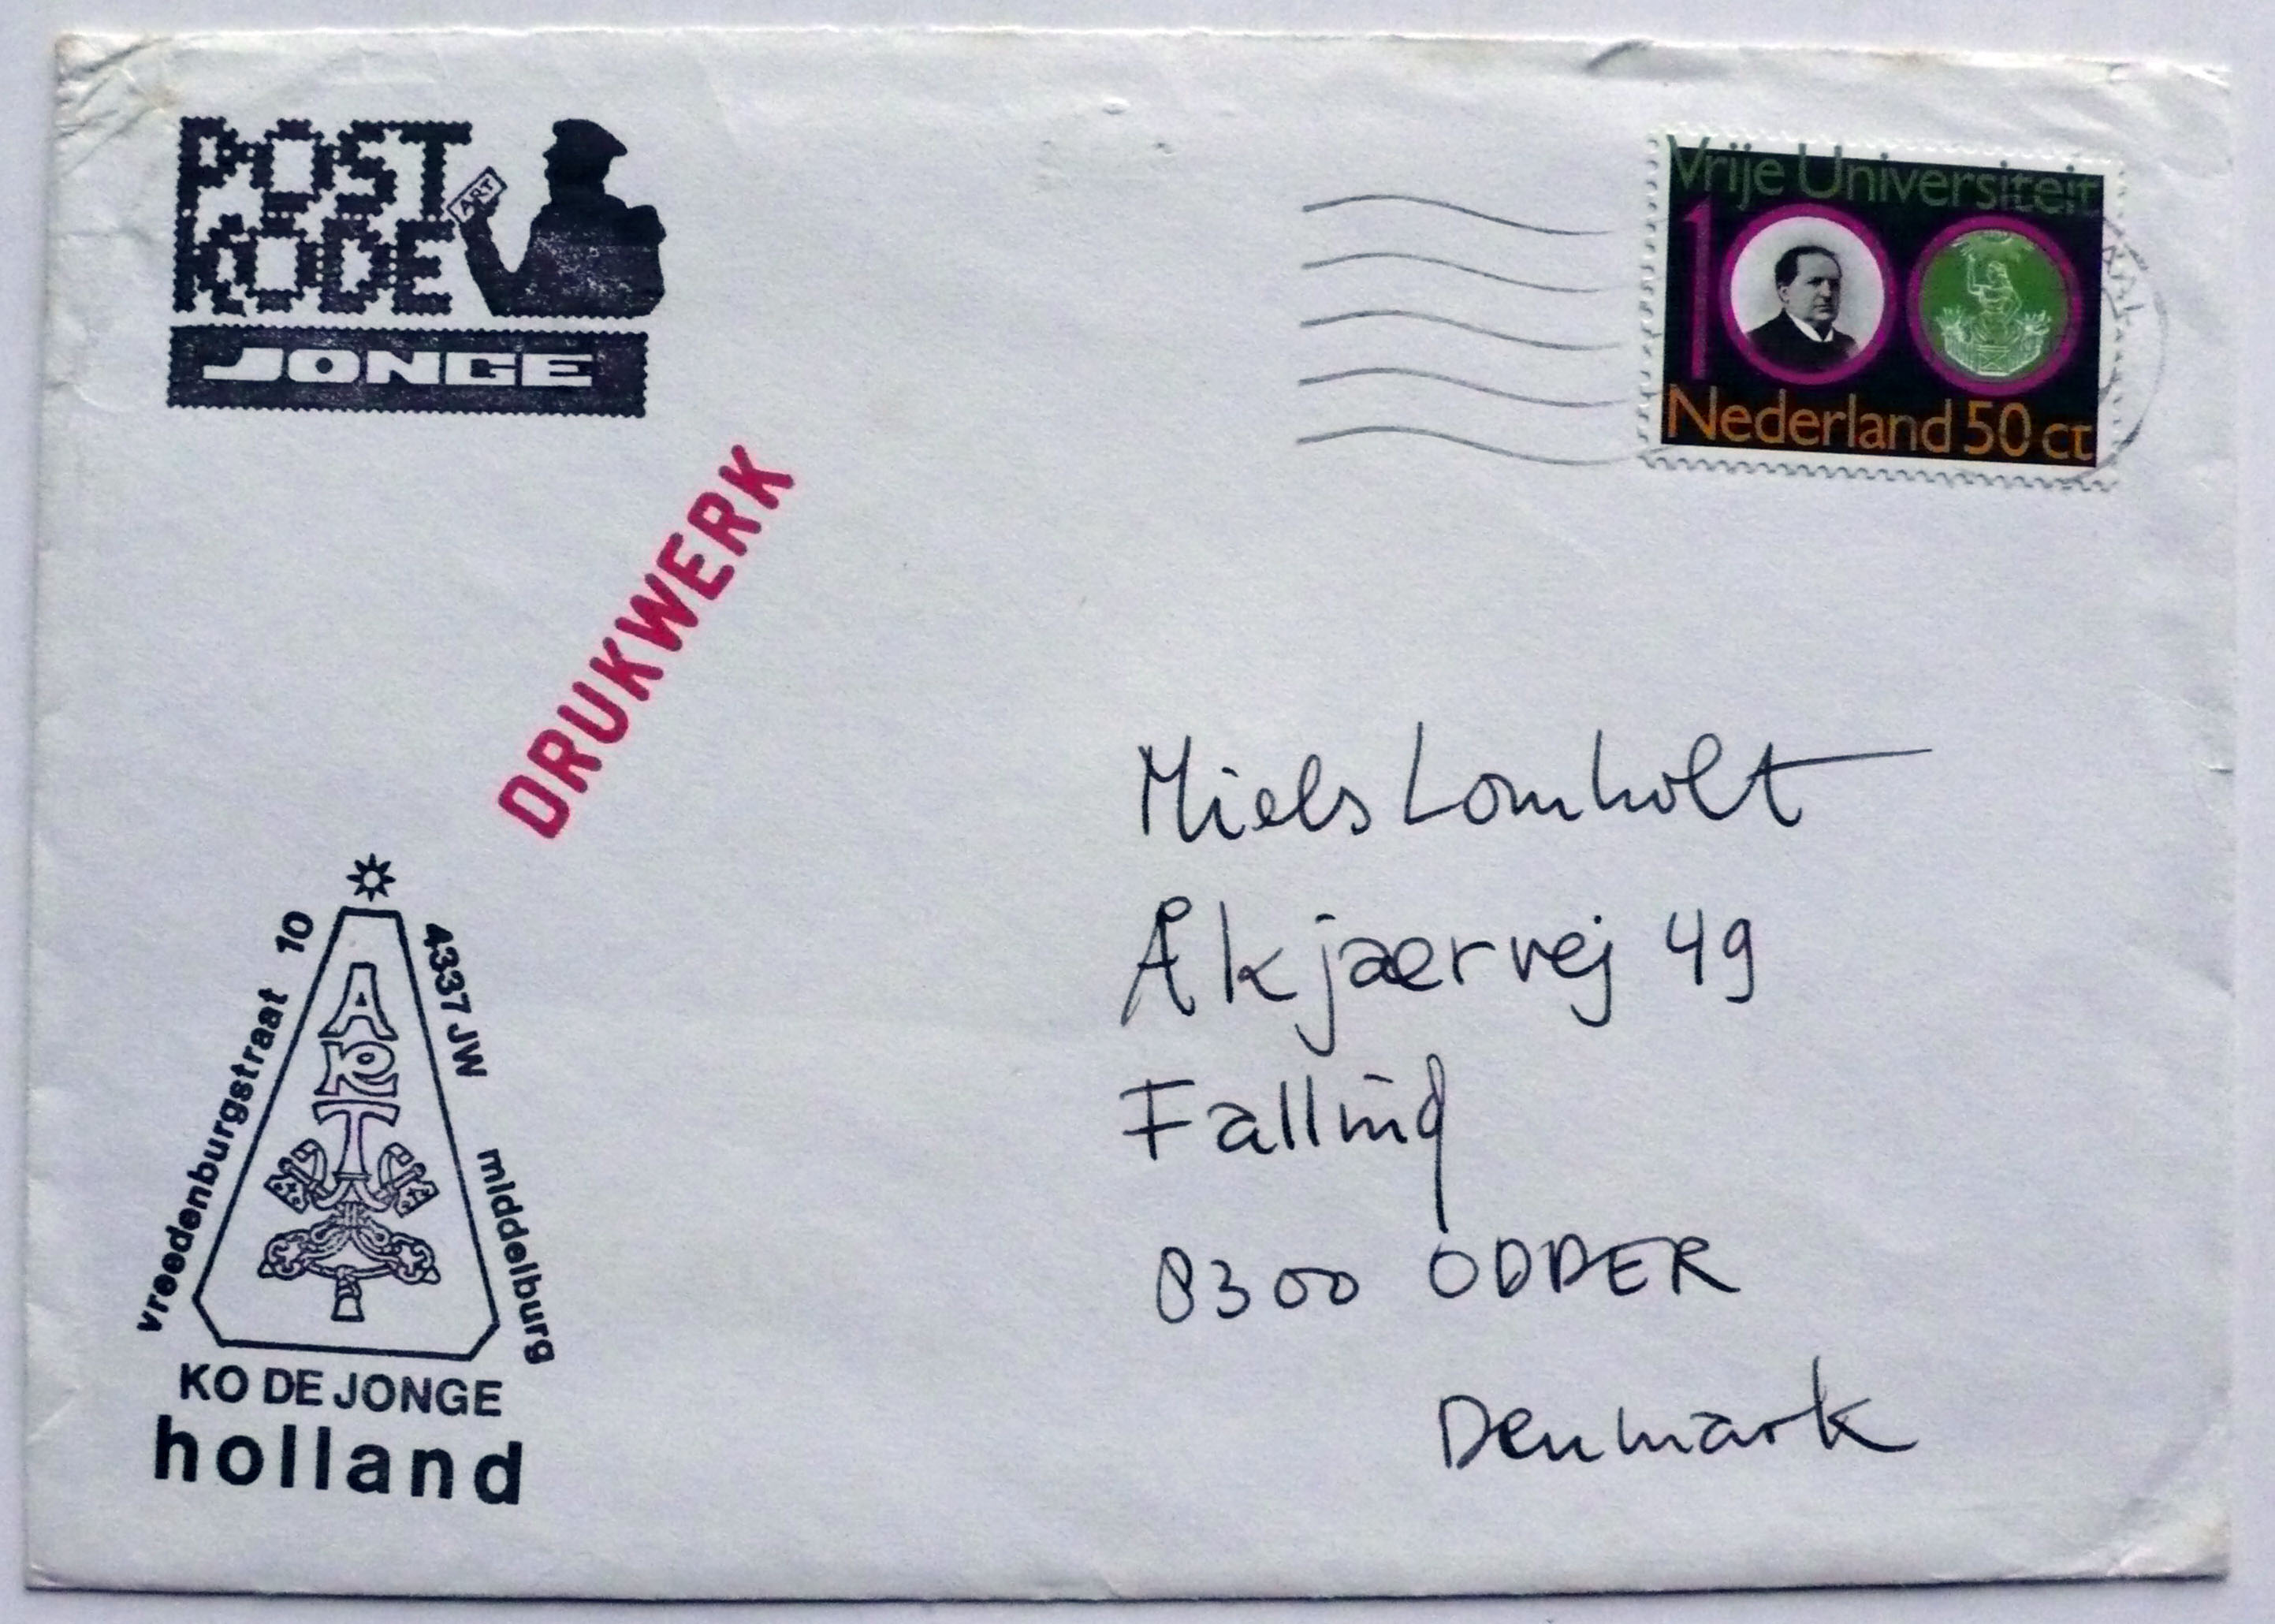 POST
KODE
ART
JONGE
Vrije Universiteit
100
Nederland 50 ct
DRUKWERK
Niels Lomholt
Åkjaervej 49
Falling
8300 ODDER
Denmark
vreedenburgstraat 10
4337 JW middelburg
ART
KO DE JONGE
holland